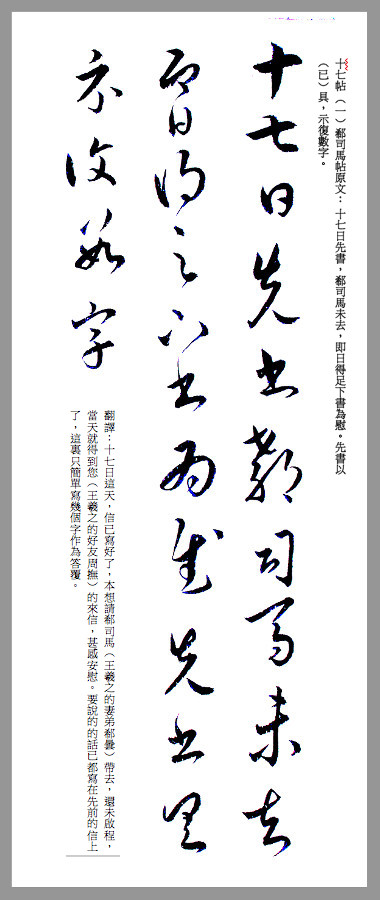 十七帖（一）郗司馬帖原文：十七日先書，郗司馬未去，即日得足下書為慰。先書以
（已）具，示復數字。
十七日先書郗司馬未去
即日得足下書為慰先書以具
示復數字
翻譯：十七日這天，信已寫好了，本想請郗司馬（王羲之的妻弟郗曇）帶去，還未啟程，
當天就得到您（王羲之的好友周撫）的來信，甚感安慰。要說的的話已都寫在先前的信上
了，這裏只簡單寫幾個字作為答覆。